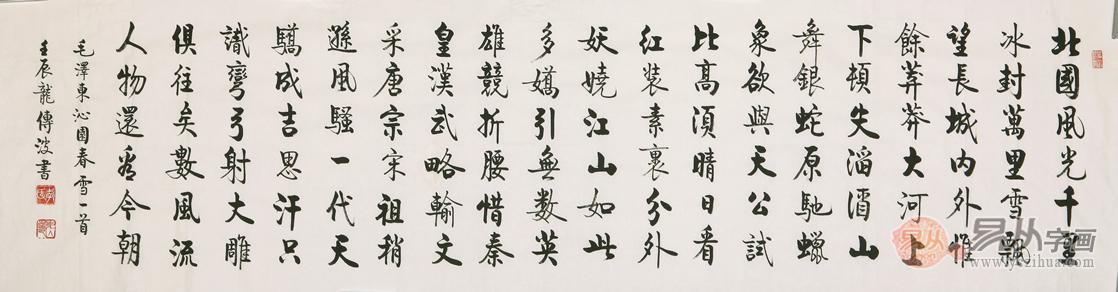 北國風光千里
冰封萬里雪飄
望長城內外惟
餘莽莽大河上
下頓失滔滔山
舞銀蛇原馳蠟
象欲與天公試
比高須晴日看
紅裝素裹分外
妖嬈江山如此
多嬌引無數英
雄競折腰惜秦
皇漢武略輸文
采唐宗宋祖稍
遜風騷一代天
驕成吉思汗只
識彎弓射大雕
俱往矣數風流
人物還看今朝
毛澤東沁園春雪一首
壬辰龍傳波書
易从字画